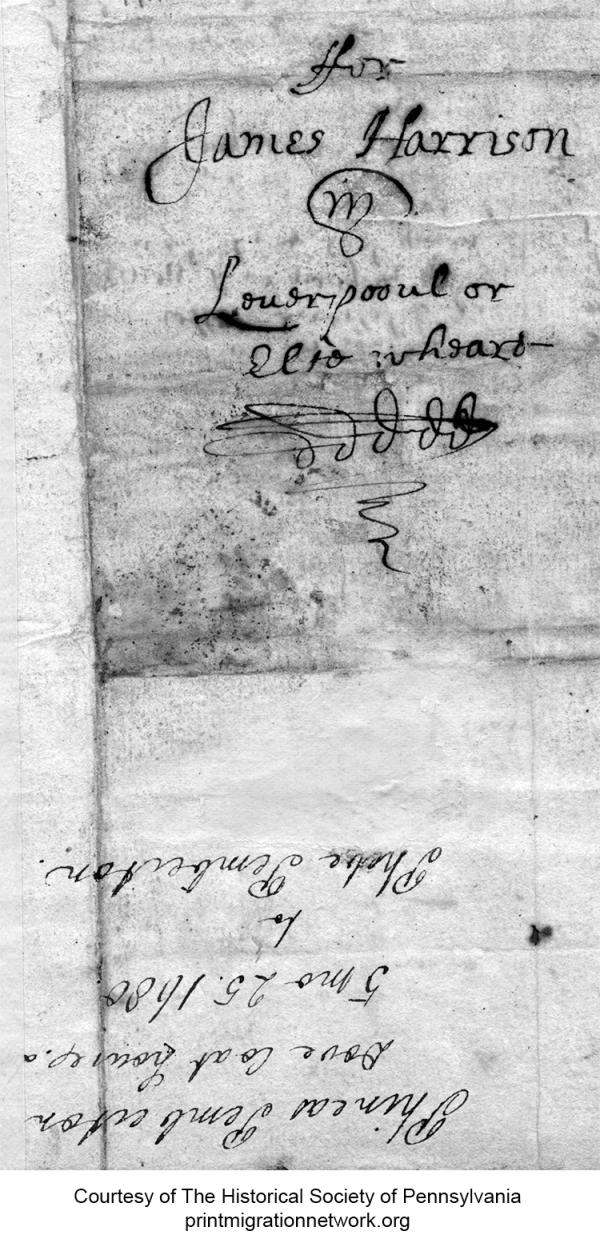 ffor
James Harrison
in
Leuerpooul or
Elce wheare
Phineas Pemberton
Dove Coat
5 mo 25. 1680
to
Phebe Pemberton.
Courtesy of The Historical Society of Pennsylvania
printmigrationnetwork.org